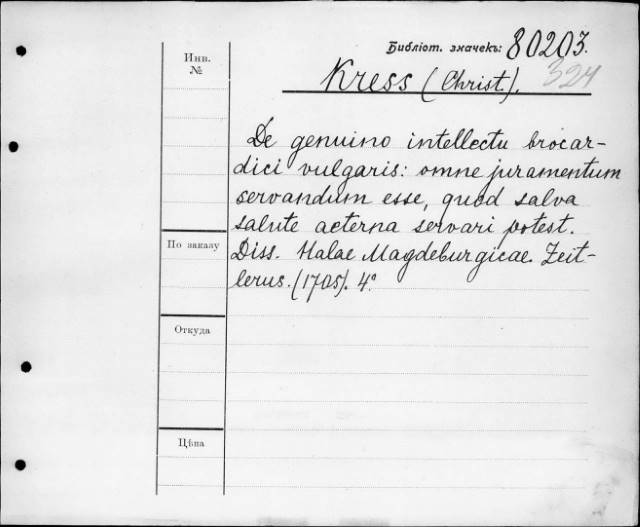 Библіот. значекъ: 80203.
324
Kress (Christ.).
Инв.
№
De genuino intellectu brocar-
dici vulgaris: omne juramentum
servandum esse, quod salva
salute aeterna servari potest.
По заказу
Diss. Halae Magdeburgicae. Zeit-
lerus. (1705). 4°
Откуда
Цѣна